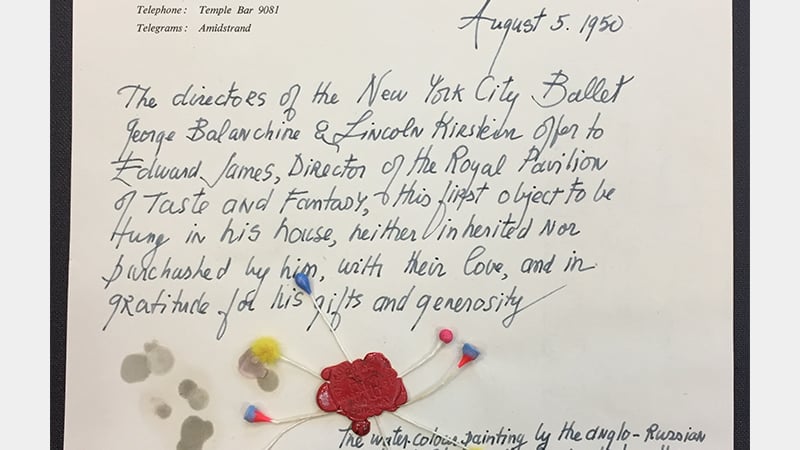 Telephone: Temple Bar 9081
Telegrams: Amidstrand
August 5. 1950
The directors of the New York City Ballet
George Balanchine & Lincoln Kirstein offer to
Edward James, Director of the Royal Pavilion
of Taste and Fantasy, this first object to be
Hung in his house, neither inherited nor
purchashed by him, with their love, and in
gratitude for his gifts and generosity
The water-colour painting by the anglo-Russian